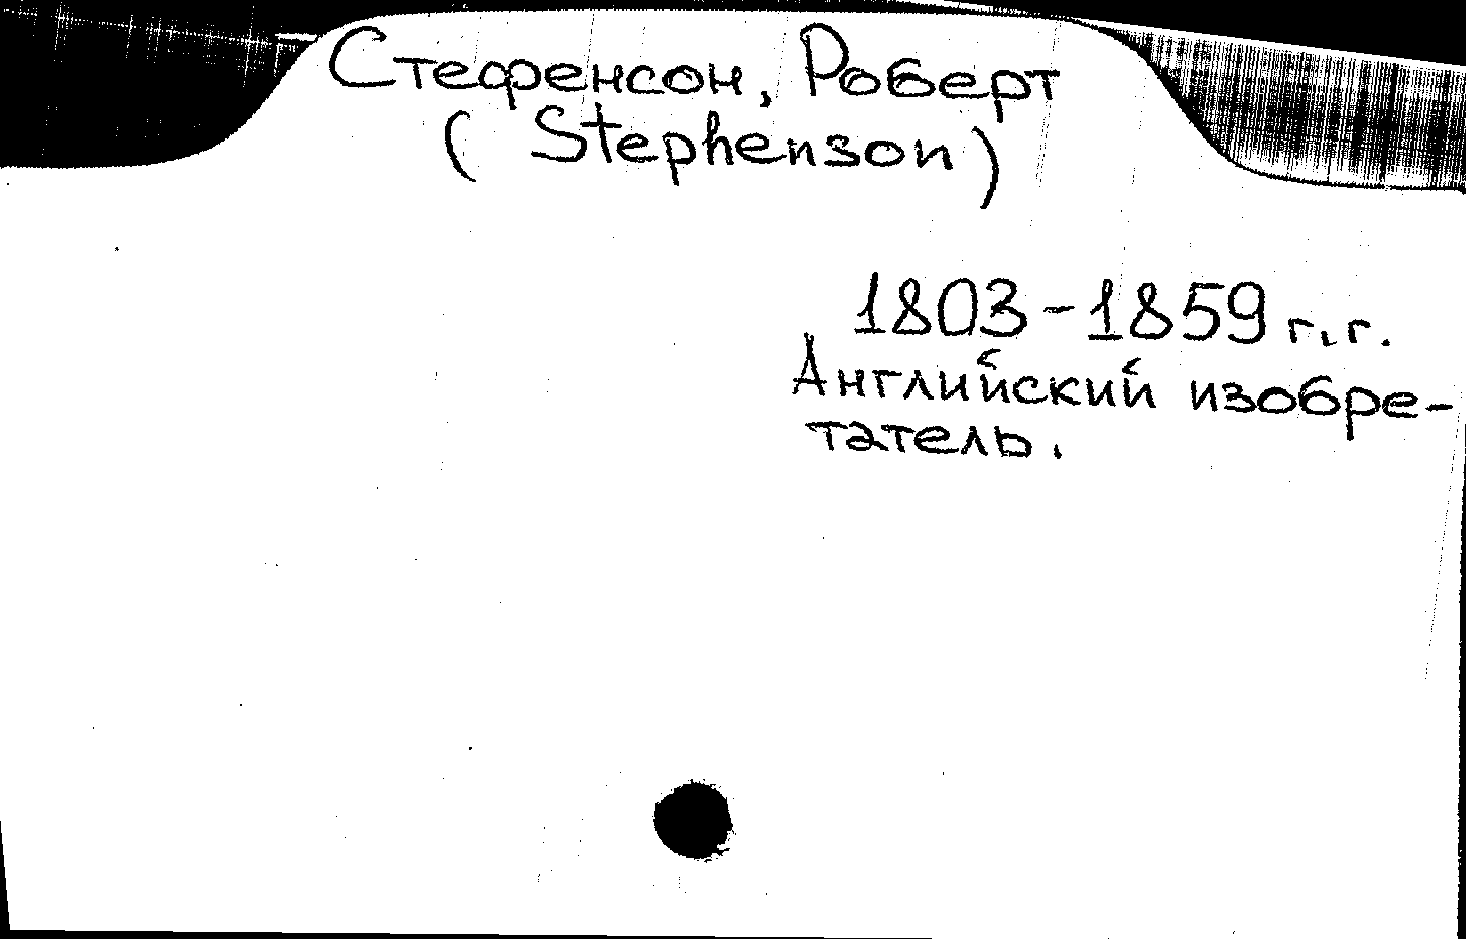 Стефенсон, Роберт
( Stephenson )
1803-1859 г.г.
Английский изобре-
татель.